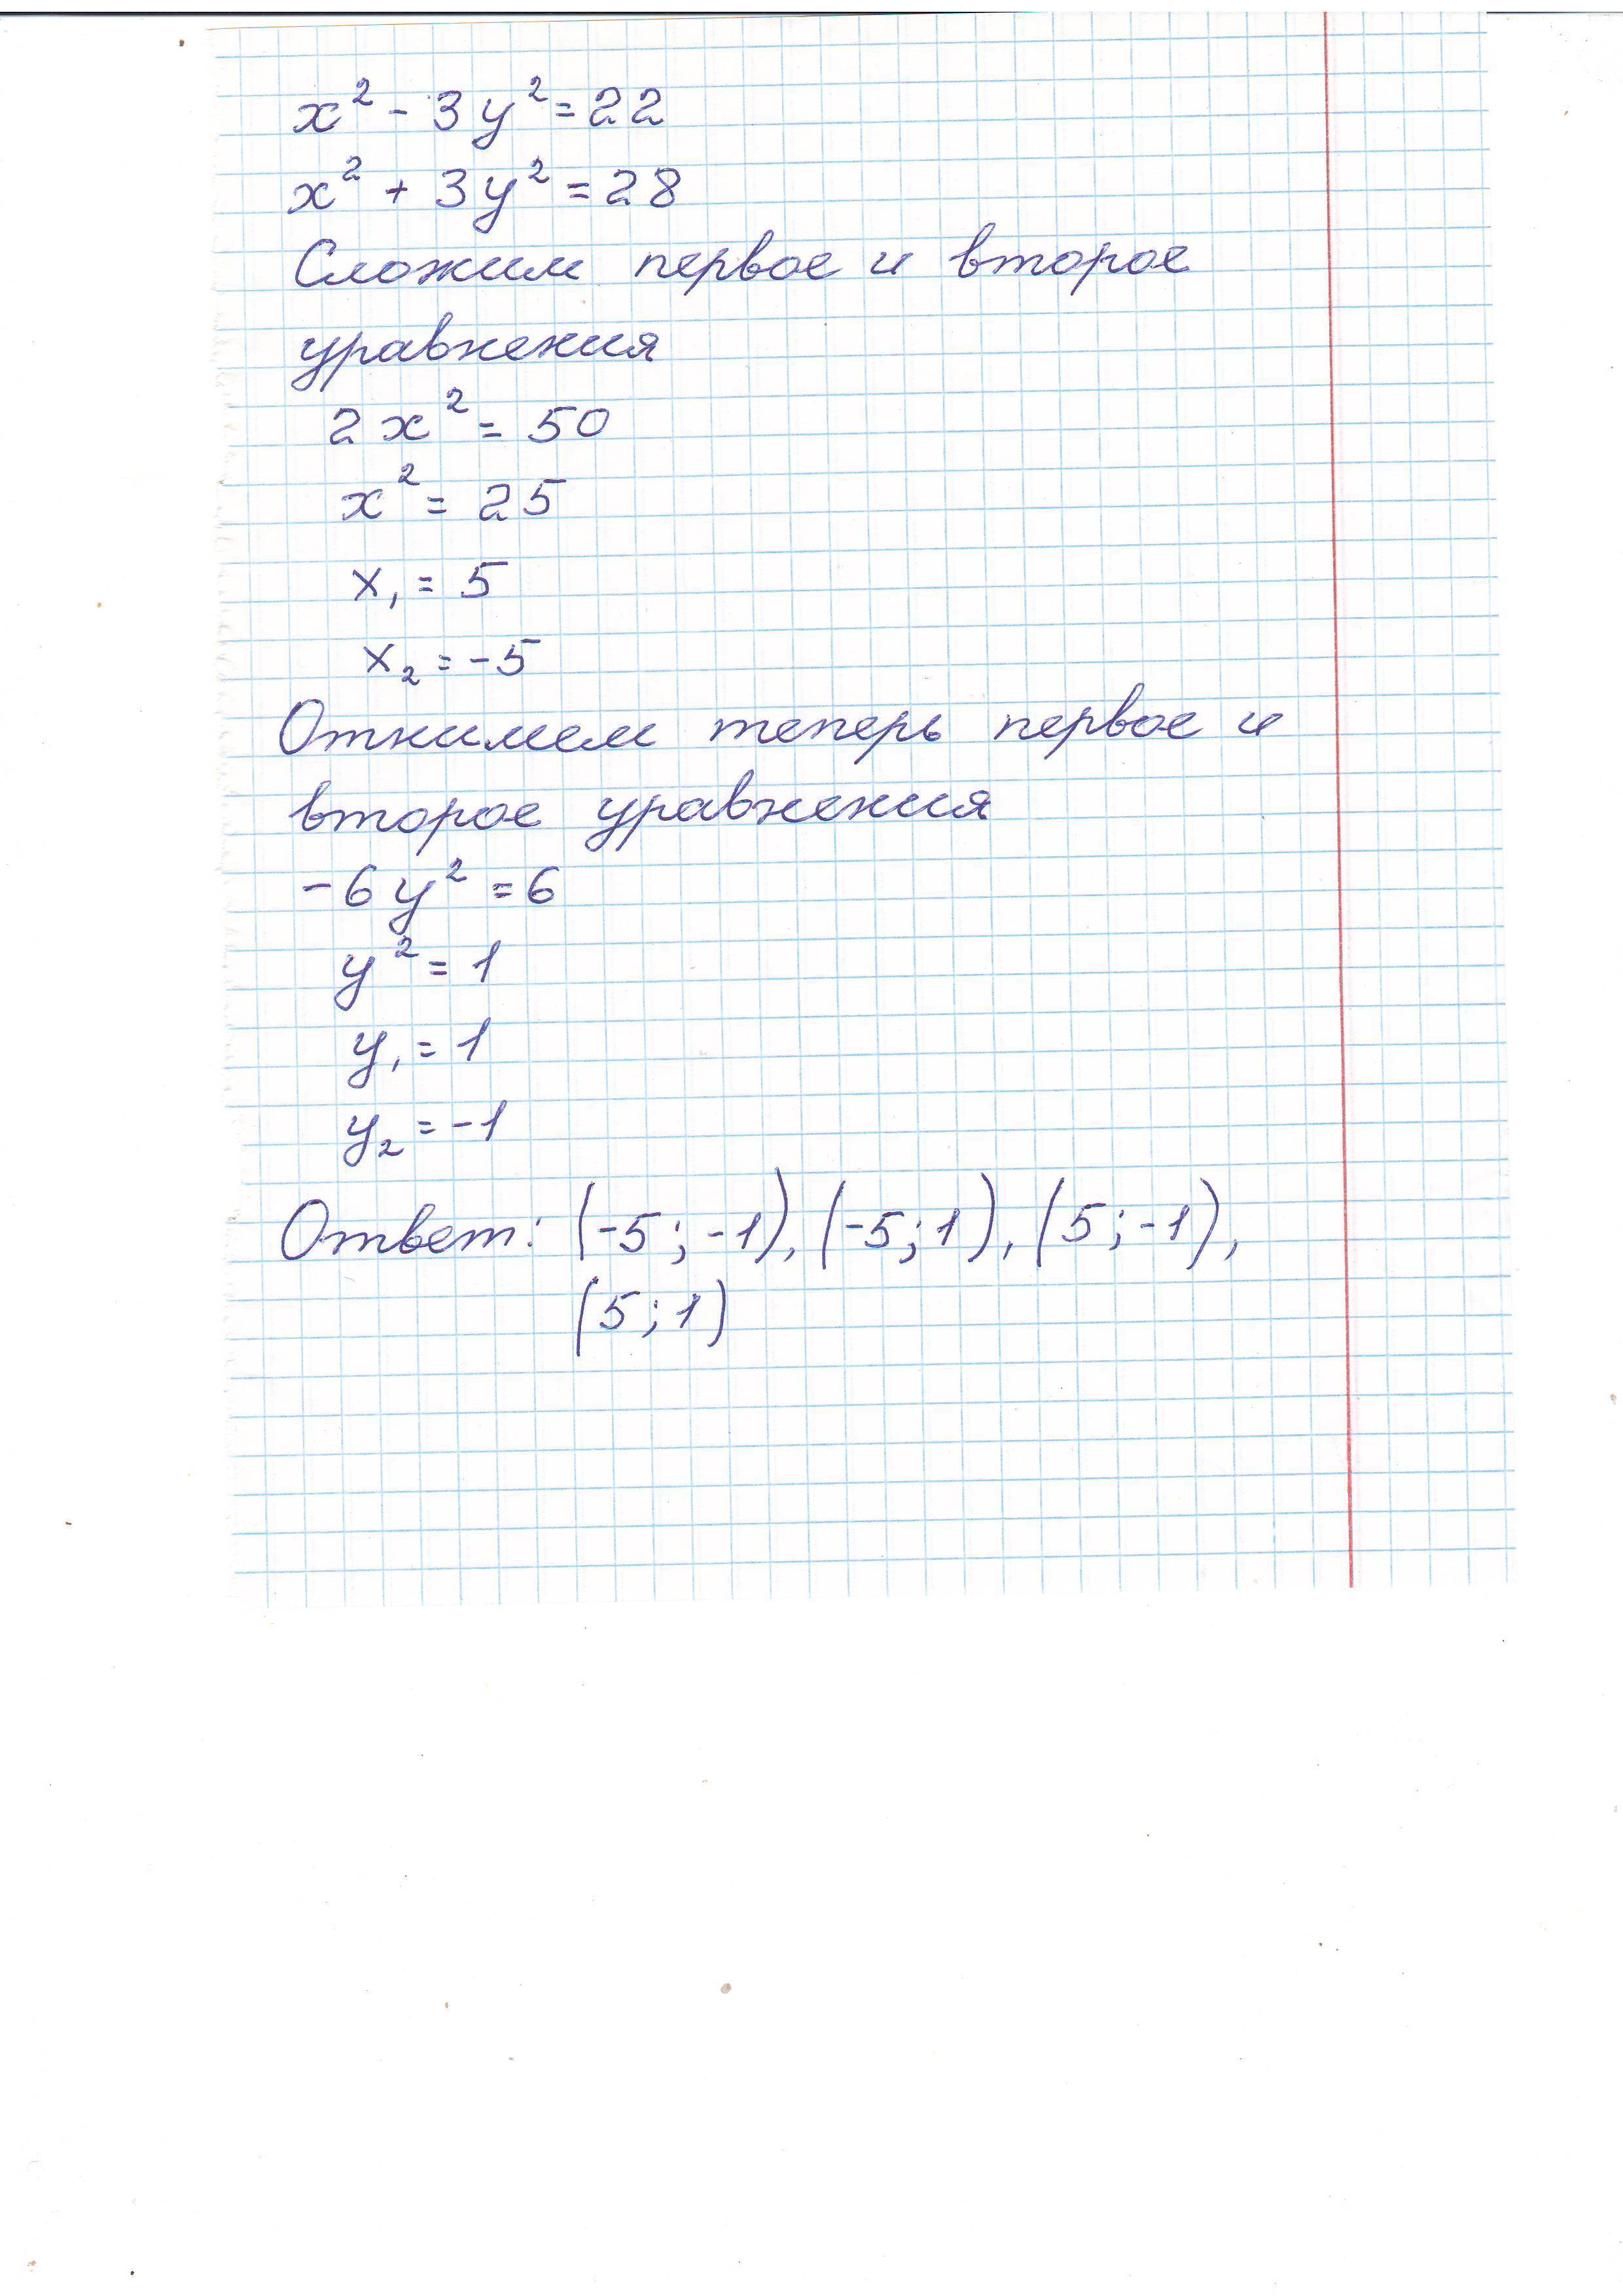 x² - 3y² = 22
x² + 3y² = 28
Сложим первое и второе
уравнения
2x² = 50
x² = 25
x₁ = 5
x₂ = -5
Отнимем теперь первое и
второе уравнения
-6y² = 6
y² = 1
y₁ = 1
y₂ = -1
Ответ: (-5; -1), (-5; 1), (5; -1),
(5; 1)